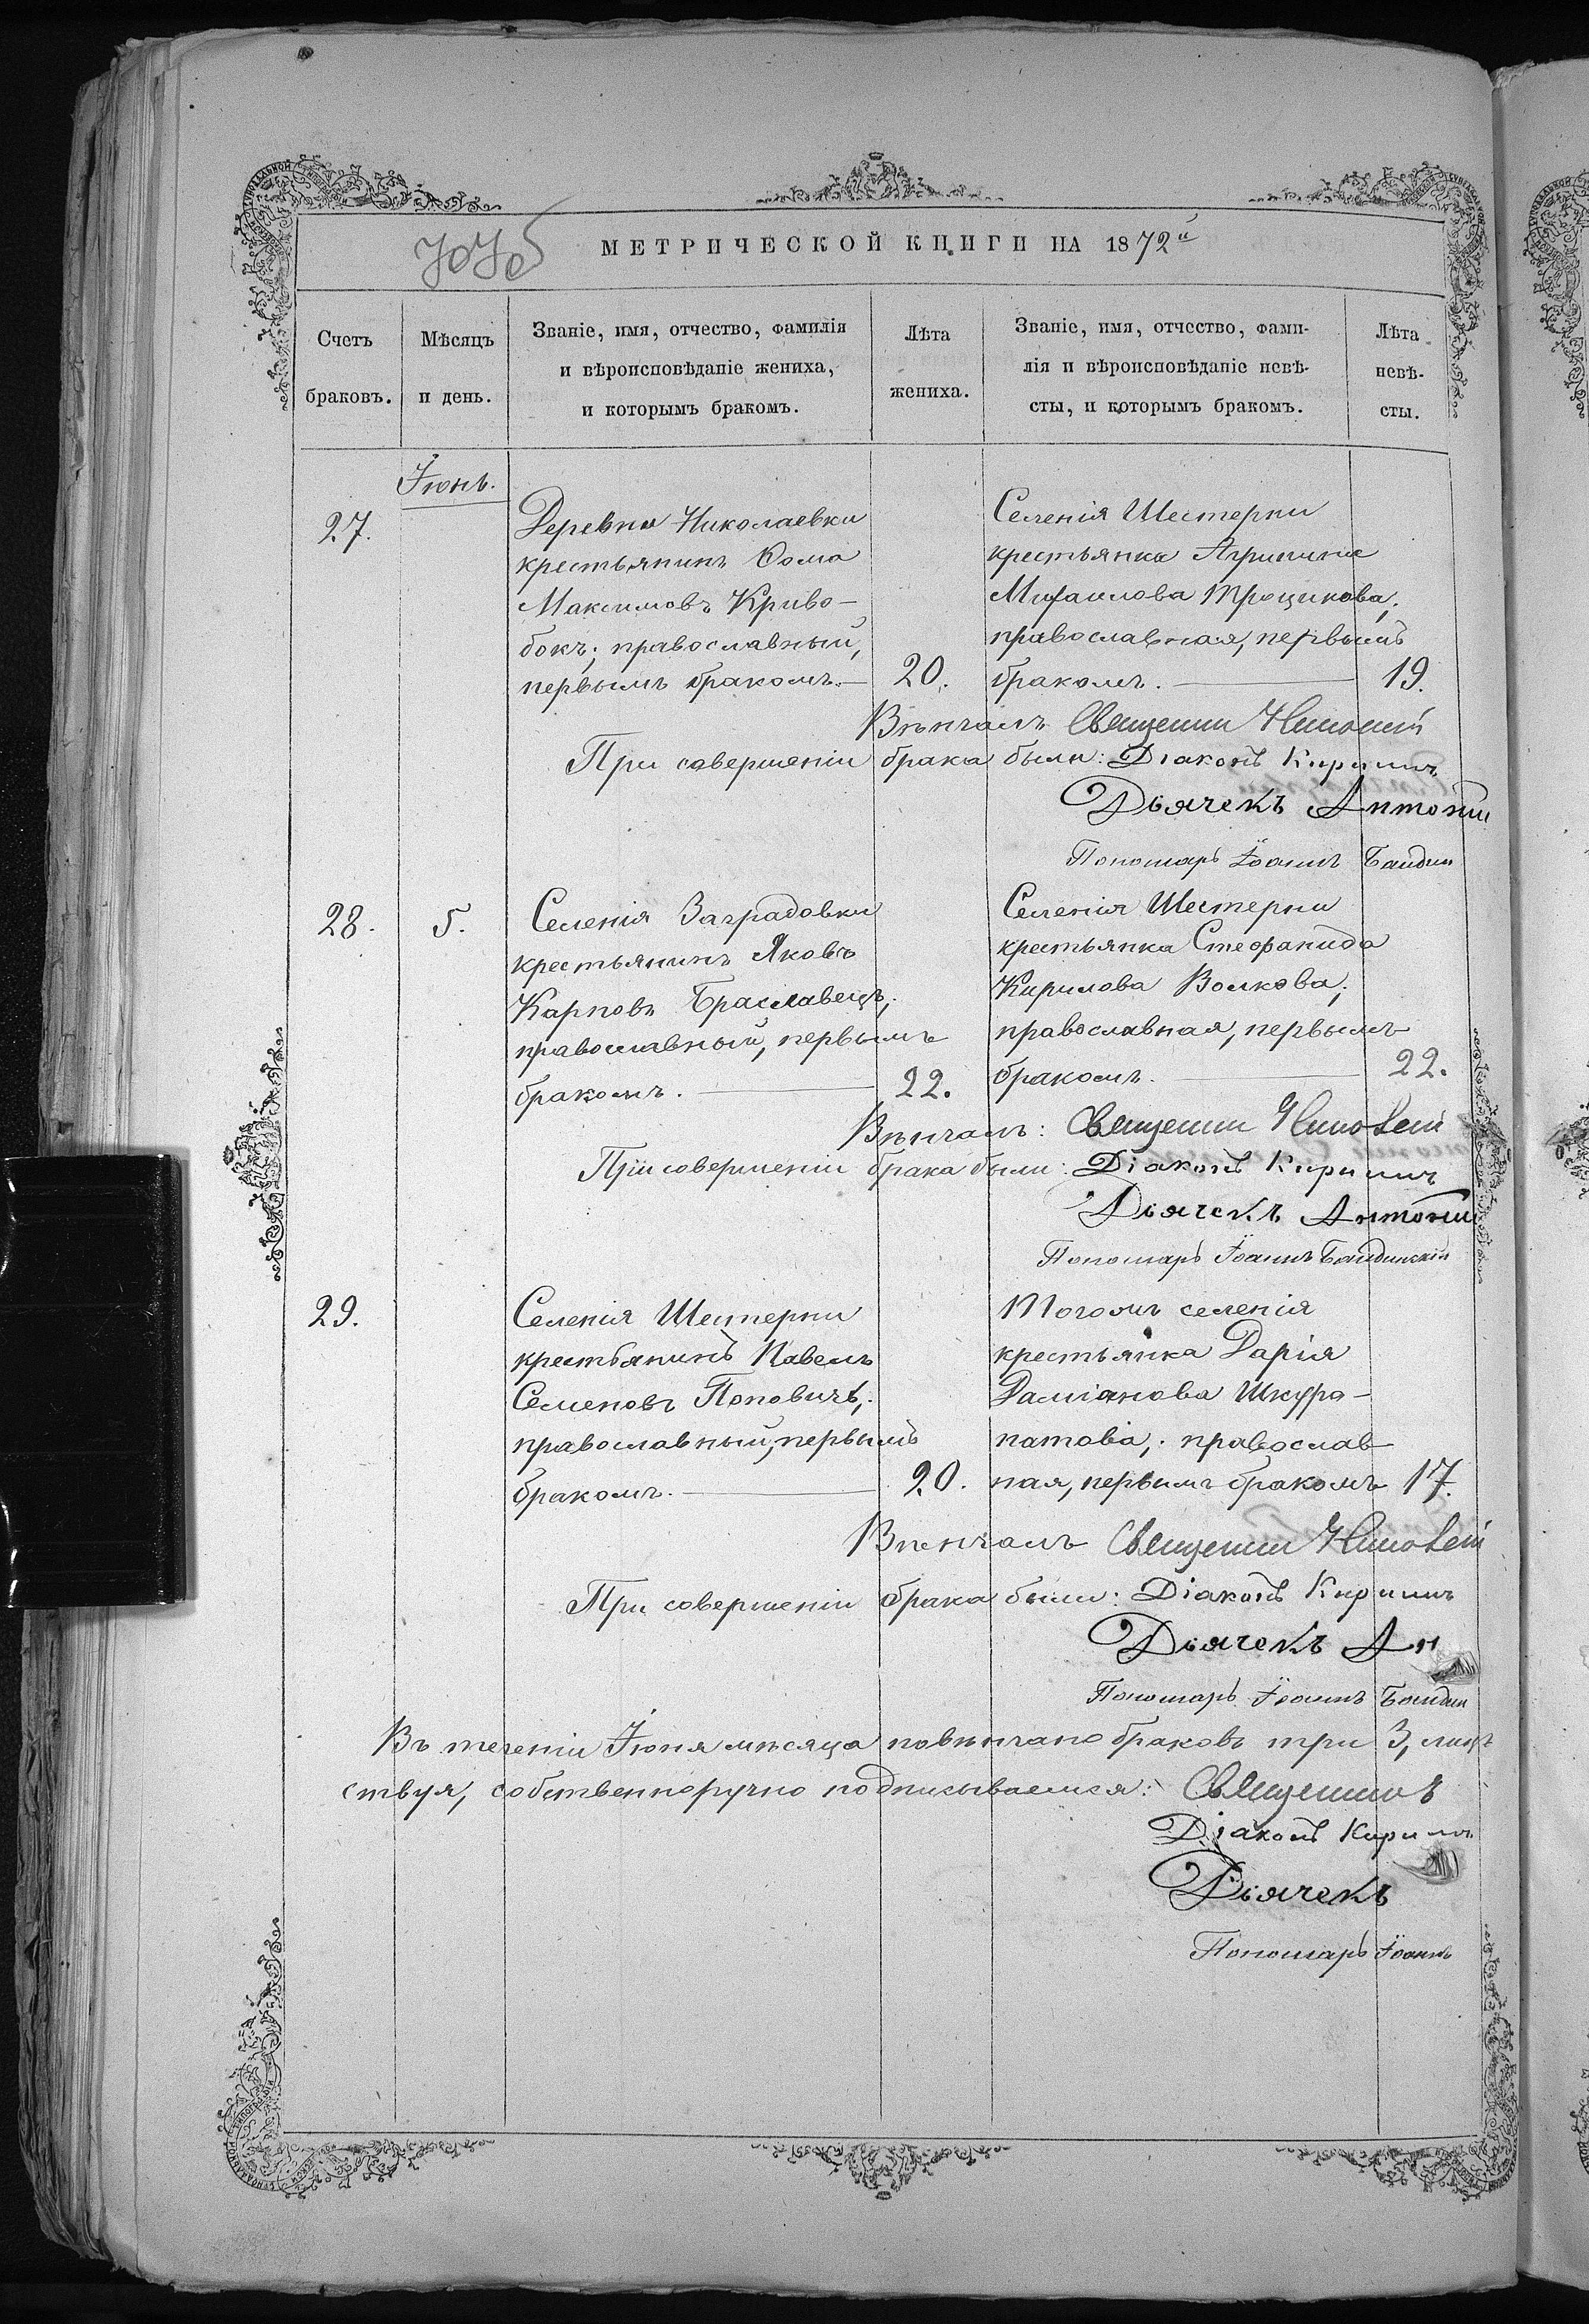 МЕТРИЧЕСКОЙ КНИГИ НА 1872й
Счетъ браковъ.
Мѣсяцъ и день.
Званіе, имя, отчество, фамилія
и вѣроисповѣданіе жениха,
и которымъ бракомъ.
Лѣта жениха.
Званіе, имя, отчество, фами-
лія и вѣроисповѣданіе невѣ-
сты, и которымъ бракомъ.
Лѣта невѣ-
сты.
Іюнь.
27.
Деревни Николаевки
крестьянинъ Ѳома
Максимовъ Криво-
бокъ; православный,
первымъ бракомъ.—
20.
Селенія Шестерни
крестьянка Агрипина
Михаилова Трощикова;
православная, первымъ
бракомъ.
19.
Вѣнчалъ Священни
При совершеніи брака были: Діаконъ Кириллъ
Дьячекъ Антоній
Пономарь Іоаннъ
28.
5.
Селенія Заградовки
крестьянинъ Яковъ
Карповъ Браславецъ;
православный, первымъ
бракомъ.
22.
Селенія Шестерни
крестьянка Стефанида
Кирилова Волкова;
православная, первымъ
бракомъ.
22.
Вѣнчалъ: Священни
При совершеніи брака были: Діаконъ Кириллъ
Дьячекъ Антоній
Пономарь Іоаннъ
29.
Селенія Шестерни
крестьянинъ Павелъ
Семеновъ Поповичъ;
православный, первымъ
бракомъ.
20.
Тогожъ селенія
крестьянка Дарія
Даміанова Шкура-
патова; православ-
ная, первымъ бракомъ
17.
Вѣнчалъ Священни
При совершеніи брака были: Діаконъ Кириллъ
Дьячекъ Ан
Пономарь Іоаннъ
Въ теченіи Іюня мѣсяца повѣнчано браковъ три 3,
ствуя, собственноручно подписываемся: Священникъ
Діаконъ Кириллъ
Дьячекъ
Пономарь Іоаннъ